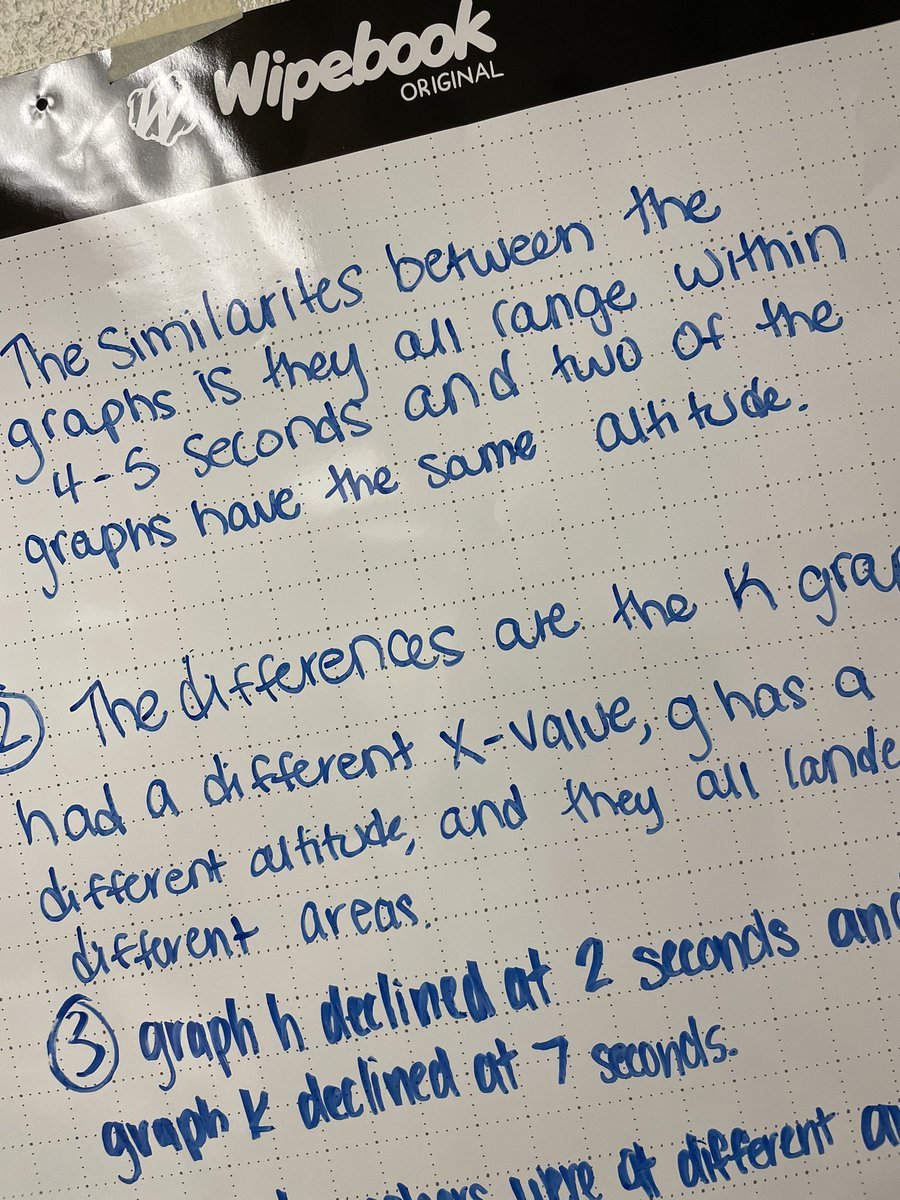 Wipebook
ORIGINAL
The Similarites between the
graphs is they all range within
4-5 seconds and two of the
graphs have the same altitude.
2 The differences are the K
had a different x-value, g has a
different altitude, and they all
different areas.
3 graph h declined at 2 seconds and
graph k declined at 7 seconds.
were at different